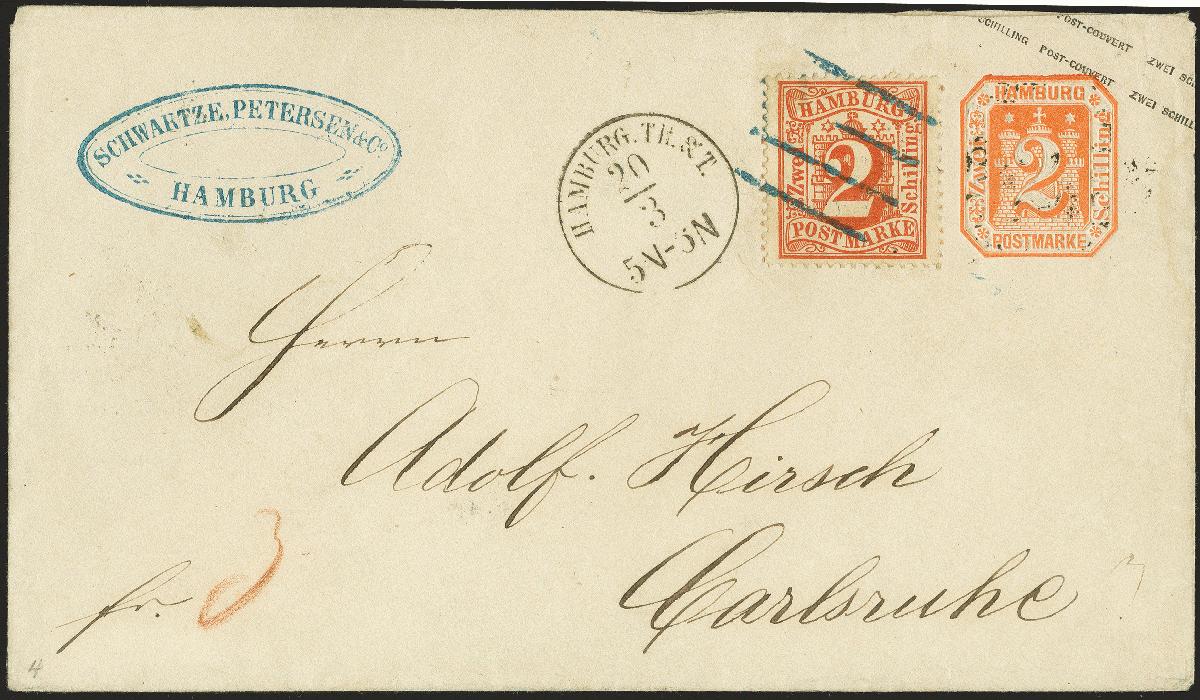 SCHWARTZE, PETERSEN & Co
HAMBURG
HAMBURG. TH. & T.
20
3
5N-5N
HAMBURG
Zwei
2
Schilling
POSTMARKE
HAMBURG
Zwei
2
Schilling
POSTMARKE
POST-COUVERT
SCHILLING POST-COUVERT ZWEI SC
ZWEI SCHILL
Herrn
Adolf. Hirsch
Carlsruhe
fr. 3
4